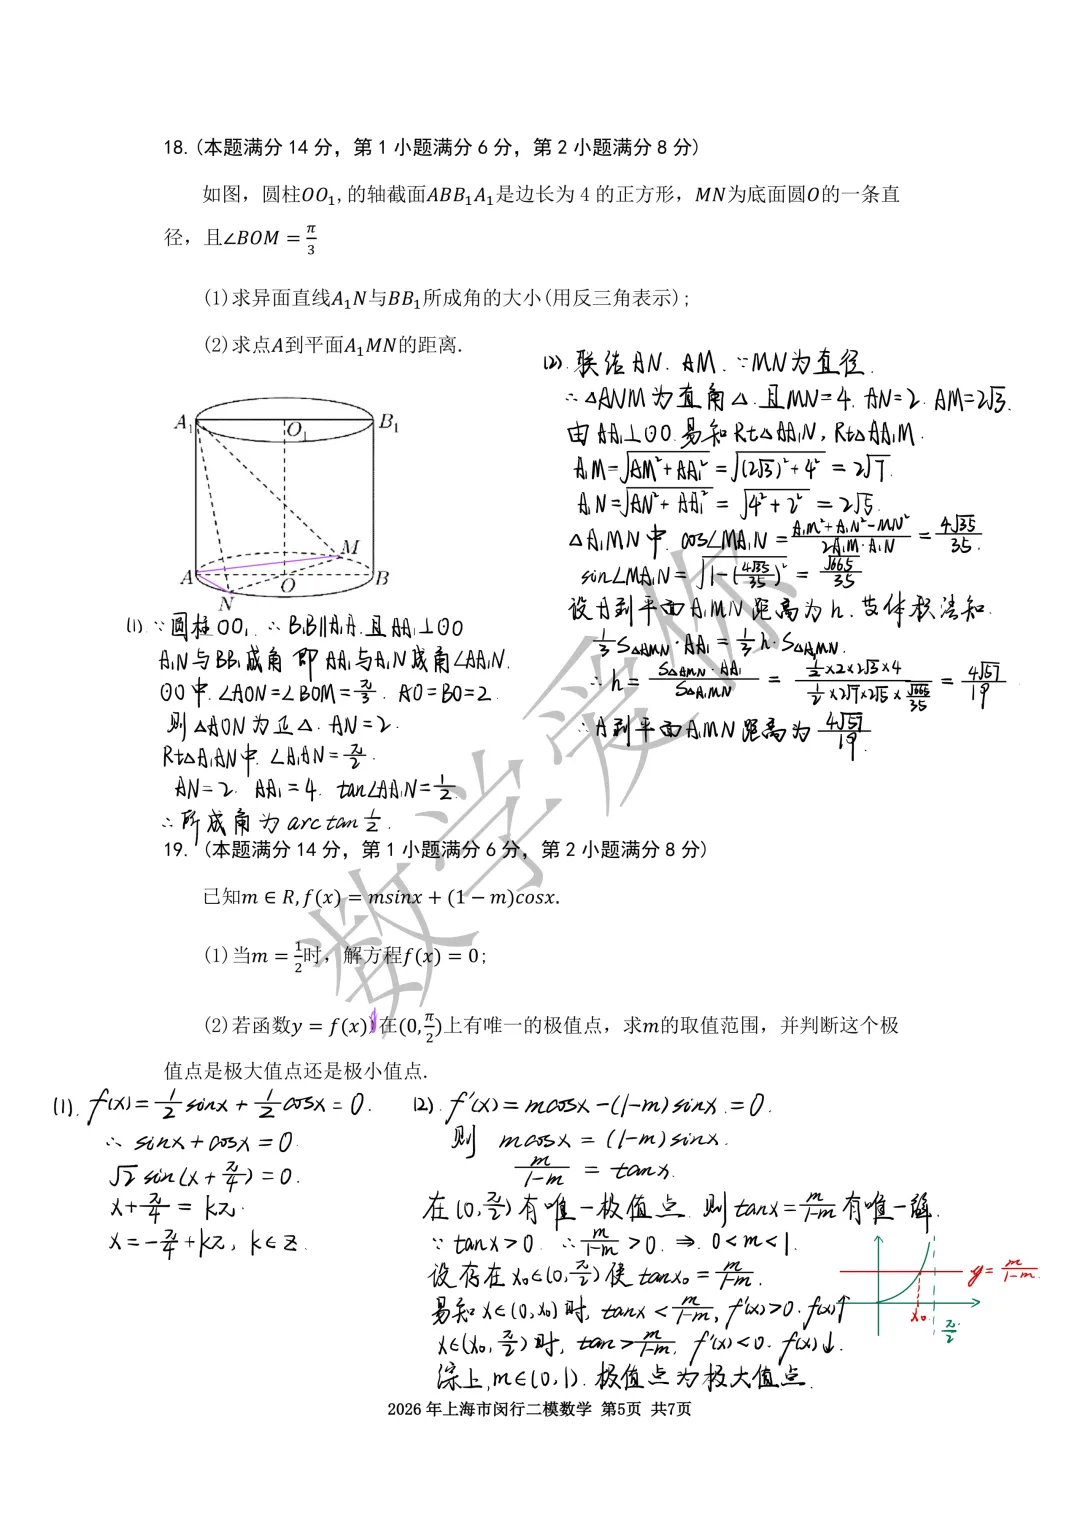 18.(本题满分 14 分，第 1 小题满分 6 分，第 2 小题满分 8 分)
如图，圆柱OO₁,的轴截面ABB₁A₁是边长为 4 的正方形，MN为底面圆O的一条直
径，且∠BOM = π/3
(1)求异面直线A₁N与BB₁所成角的大小(用反三角表示);
(2)求点A到平面A₁MN的距离.
A₁ O₁ B₁
M
A O B
N
(1). ∵圆柱OO₁. ∴B₁B∥A₁A.且AA₁⊥⊙O
A₁N与BB₁成角 即 AA₁与A₁N成角∠AA₁N.
⊙O中. ∠AON=∠BOM=π/3. AO=BO=2.
则△AON为正△. AN=2.
Rt△A₁AN中. ∠A₁AN=π/2.
AN=2. AA₁=4. tan∠AA₁N=1/2.
∴所成角为arctan 1/2.
(2). 联结AN. AM. ∵MN为直径.
∴△ANM为直角△.且MN=4. AN=2. AM=2√3.
由AA₁⊥⊙O.易知Rt△AA₁N, Rt△AA₁M.
A₁M=√(AM²+AA₁²)=√((2√3)²+4²)=2√7.
A₁N=√(AN²+AA₁²)=√(4²+2²)=2√5.
△A₁MN中. cos∠MA₁N=(A₁M²+A₁N²-MN²)/(2A₁M·A₁N)=4√35/35.
sin∠MA₁N=√(1-(4√35/35)²)=√665/35
设A到平面A₁MN距离为h.由体积法知.
1/3 S△AMN·AA₁=1/3 h·S△A₁MN.
∴h=(S△AMN·AA₁)/S△A₁MN=(1/2×2×2√3×4)/(1/2×2√7×2√5×√665/35)=4√57/19
∴A到平面A₁MN距离为4√57/19.
19. (本题满分 14 分，第 1 小题满分 6 分，第 2 小题满分 8 分)
已知m ∈ R,f(x) = msinx + (1 − m)cosx.
(1)当m = 1/2时，解方程f(x) = 0;
(2)若函数y = f(x))在(0,π/2)上有唯一的极值点，求m的取值范围，并判断这个极
值点是极大值点还是极小值点.
(1). f(x)=1/2 sinx+1/2 cosx=0.
∴ sinx+cosx=0.
√2 sin(x+π/4)=0.
x+π/4=kπ.
x=-π/4+kπ, k∈Z.
(2). f'(x)=mcosx-(1-m)sinx.=0.
则 mcosx=(1-m)sinx.
m/(1-m)=tanx.
在(0,π/2)有唯一极值点.则tanx=m/(1-m)有唯一解.
∵tanx>0. ∴m/(1-m)>0. ⇒. 0<m<1.
设存在x₀∈(0,π/2)使tanx₀=m/(1-m).
易知x∈(0,x₀)时, tanx<m/(1-m), f'(x)>0. f(x)↑
x∈(x₀,π/2)时, tan>m/(1-m), f'(x)<0. f(x)↓.
综上,m∈(0,1).极值点为极大值点.
y=m/(1-m).
x₀
π/2
数学爱你
2026 年上海市闵行二模数学 第5页 共7页